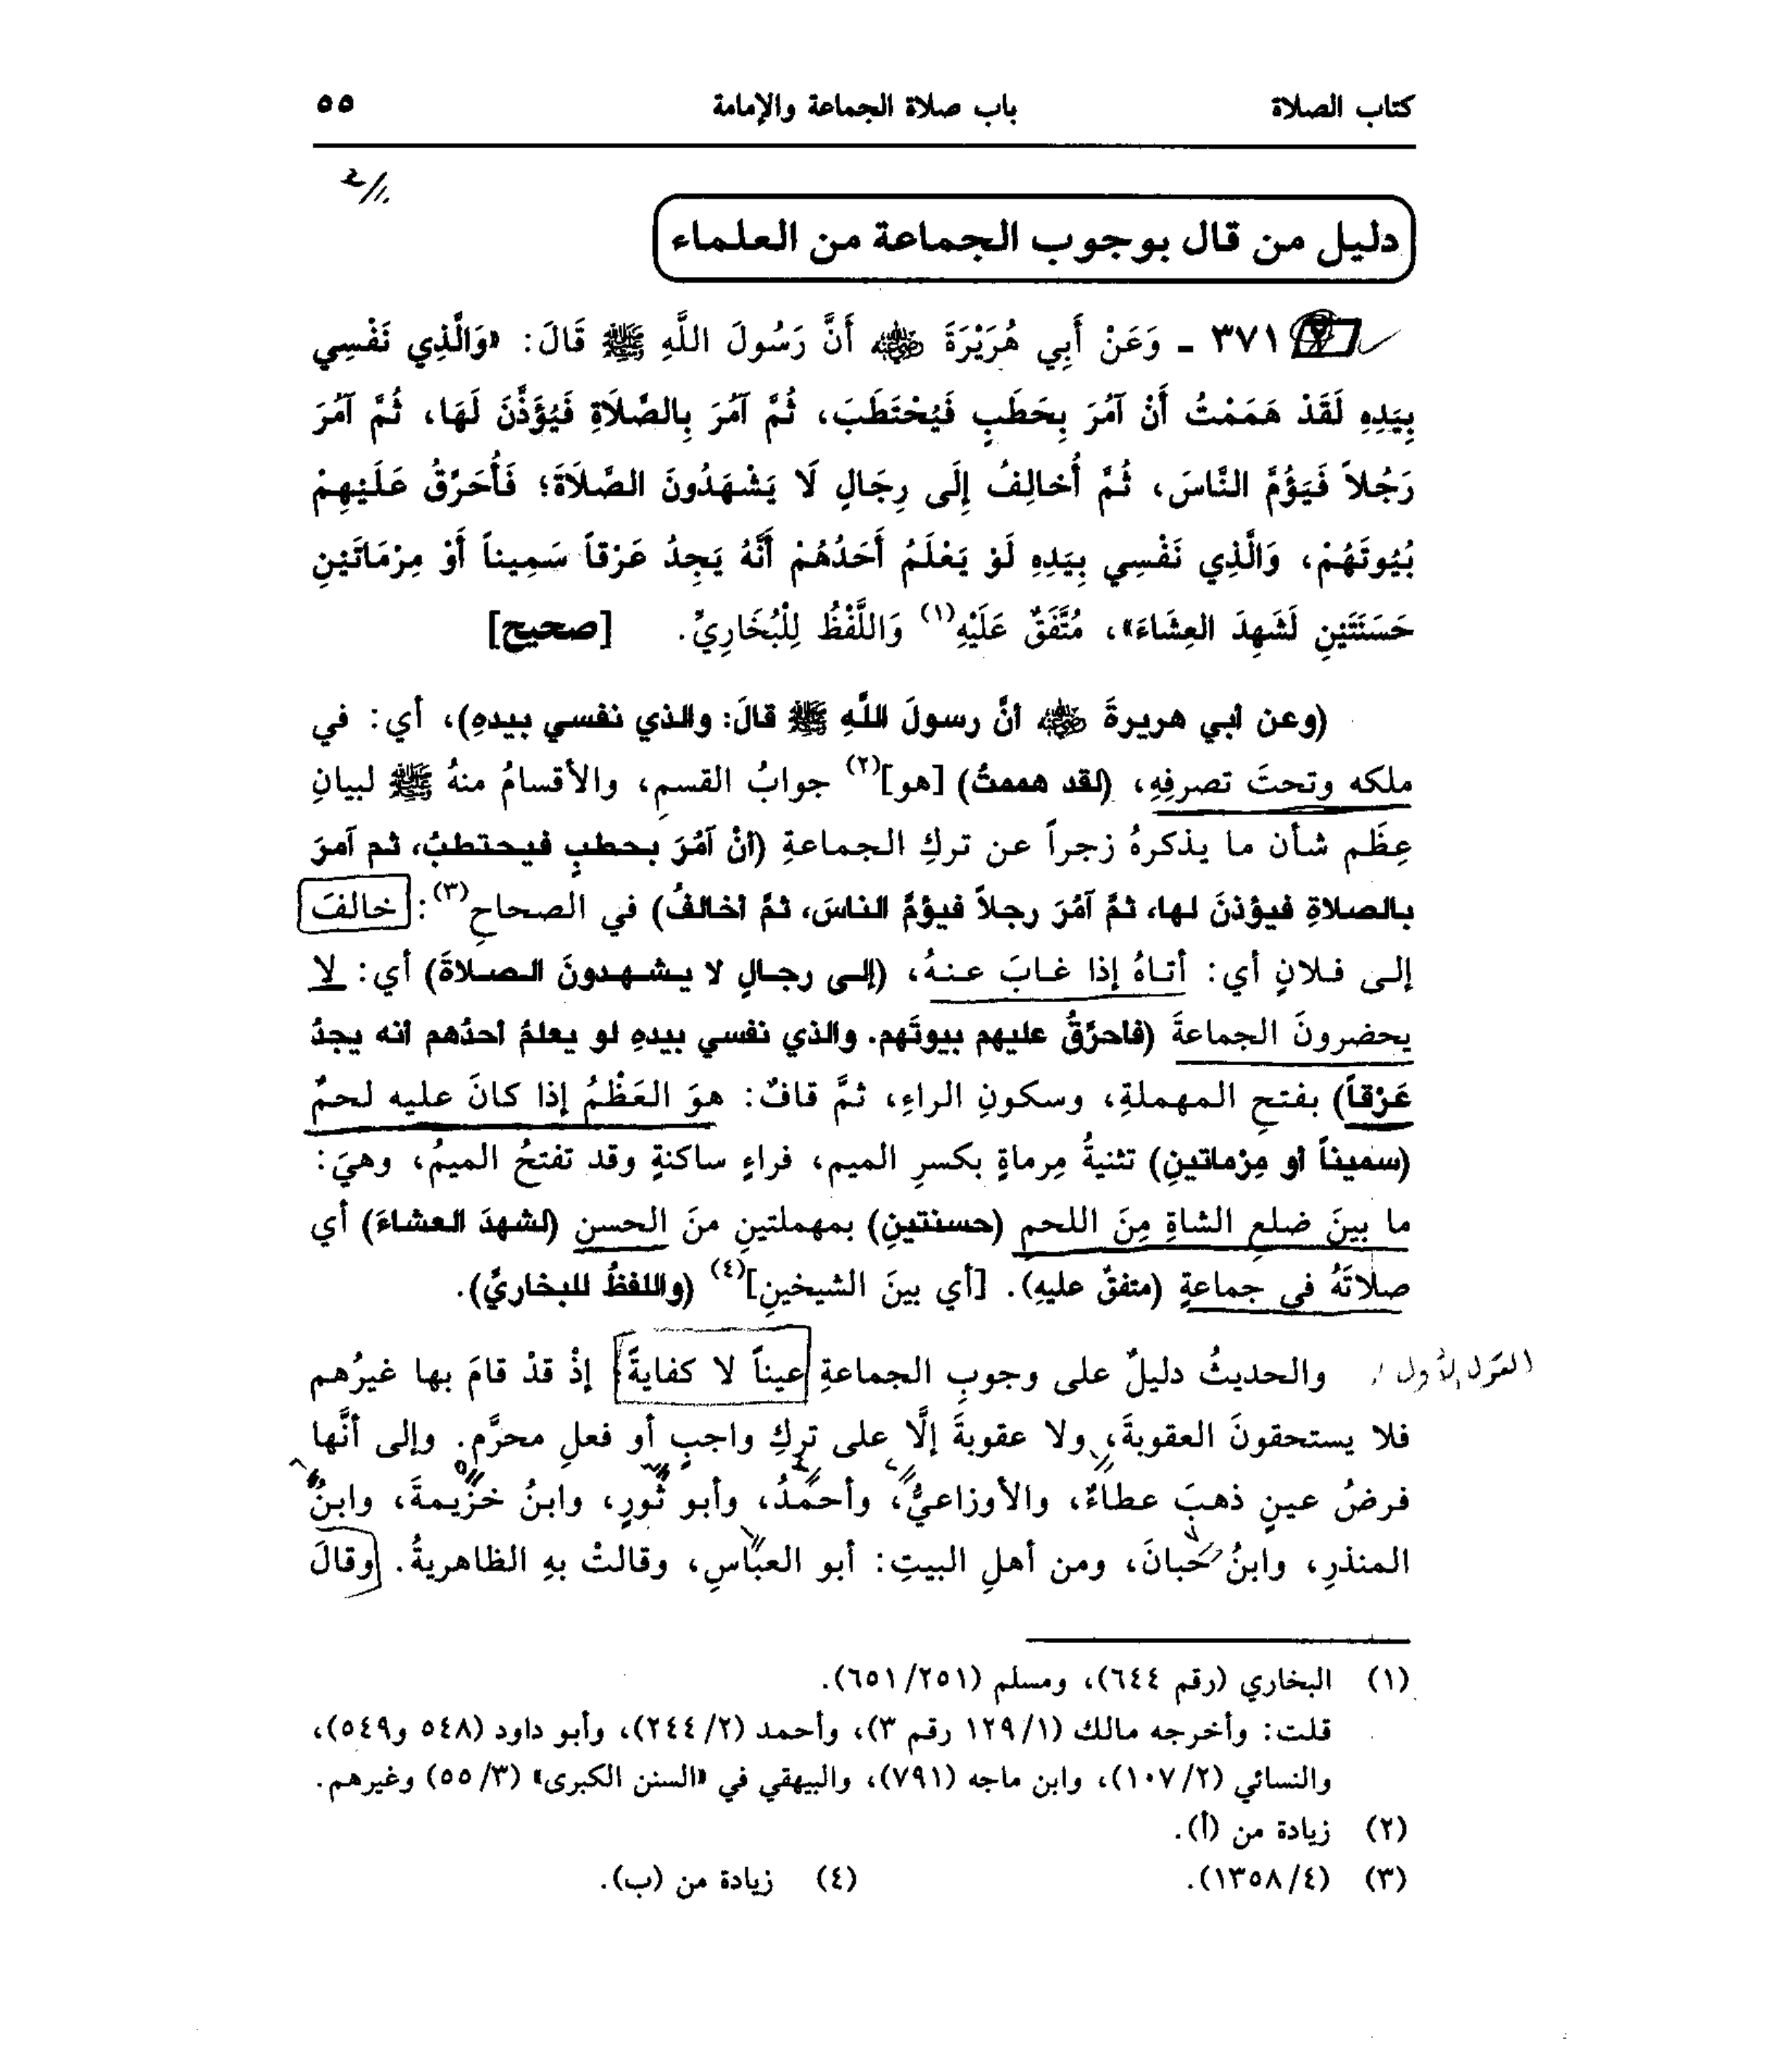 كتاب الصلاة باب صلاة الجماعة والإمامة ٥٥
دليل من قال بوجوب الجماعة من العلماء
٣٧١ - وَعَنْ أَبِي هُرَيْرَةَ رضي الله عنه أَنَّ رَسُولَ اللَّهِ ﷺ قَالَ: «وَالَّذِي نَفْسِي
بِيَدِهِ لَقَدْ هَمَمْتُ أَنْ آمُرَ بِحَطَبٍ فَيُحْتَطَبَ، ثُمَّ آمُرَ بِالصَّلَاةِ فَيُؤَذَّنَ لَهَا، ثُمَّ آمُرَ
رَجُلاً فَيَؤُمَّ النَّاسَ، ثُمَّ أُخالِفُ إِلَى رِجَالٍ لَا يَشْهَدُونَ الصَّلَاةَ؛ فَأُحَرِّقُ عَلَيْهِمْ
بُيُوتَهُمْ، وَالَّذِي نَفْسِي بِيَدِهِ لَوْ يَعْلَمُ أَحَدُهُمْ أَنَّهُ يَجِدُ عَرْقاً سَمِيناً أَوْ مِرْمَاتَيْنِ
حَسَنَتَيْنِ لَشَهِدَ العِشَاءَ»، مُتَّفَقٌ عَلَيْهِ(١) وَاللَّفْظُ لِلْبُخَارِيِّ. [صحيح]
(وعن أبي هريرةَ رضي الله عنه أنَّ رسولَ اللَّهِ ﷺ قالَ: والذي نفسي بيدهِ)، أي: في
ملكه وتحتَ تصرفِهِ، (لقد هممتُ) [هو](٢) جوابُ القسمِ، والأقسامُ منهُ ﷺ لبيانِ
عِظَمِ شأن ما يذكرهُ زجراً عن تركِ الجماعةِ (أنْ آمُرَ بحطبٍ فيحتطبُ، ثم آمرَ
بالصلاةِ فيؤذنَ لها، ثمَّ آمُرَ رجلاً فيؤمَّ الناسَ، ثمَّ أخالفُ) في الصحاحِ(٣): خالفَ
إلى فلانٍ أي: أتاهُ إذا غابَ عنهُ، (إلى رجالٍ لا يشهدونَ الصلاةَ) أي: لا
يحضرونَ الجماعةَ (فأحرِّقُ عليهم بيوتَهم. والذي نفسي بيدهِ لو يعلمُ أحدُهم أنه يجدُ
عَرْقاً) بفتحِ المهملةِ، وسكونِ الراءِ، ثمَّ قافٌ: هوَ العَظْمُ إذا كانَ عليه لحمٌ
(سميناً أو مِرْماتينِ) تثنيةُ مِرماةٍ بكسرِ الميم، فراءٍ ساكنةٍ وقد تفتحُ الميمُ، وهيَ:
ما بينَ ضلعِ الشاةِ مِنَ اللحم (حسنتينِ) بمهملتينِ منَ الحسنِ (لشهدَ العشاءَ) أي
صلاتَهُ في جماعةٍ (متفقٌ عليهِ). [أي بينَ الشيخينِ](٤) (واللفظُ للبخاريِّ).
القول الأول / والحديثُ دليلٌ على وجوبِ الجماعةِ عيناً لا كفايةً، إذْ قدْ قامَ بها غيرُهم
فلا يستحقونَ العقوبةَ، ولا عقوبةَ إلَّا على تركِ واجبٍ أو فعلِ محرَّمٍ. وإلى أنَّها
فرضُ عينٍ ذهبَ عطاءٌ، والأوزاعيُّ، وأحمدُ، وأبو ثورٍ، وابنُ خزيمةَ، وابنُ
المنذرِ، وابنُ حبانَ، ومن أهلِ البيتِ: أبو العباسِ، وقالتْ بهِ الظاهريةُ. وقالَ
(١) البخاري (رقم ٦٤٤)، ومسلم (٦٥١/٢٥١).
قلت: وأخرجه مالك (١٢٩/١ رقم ٣)، وأحمد (٢٤٤/٢)، وأبو داود (٥٤٨ و٥٤٩)،
والنسائي (١٠٧/٢)، وابن ماجه (٧٩١)، والبيهقي في «السنن الكبرى» (٥٥/٣) وغيرهم.
(٢) زيادة من (أ).
(٣) (١٣٥٨/٤). (٤) زيادة من (ب).